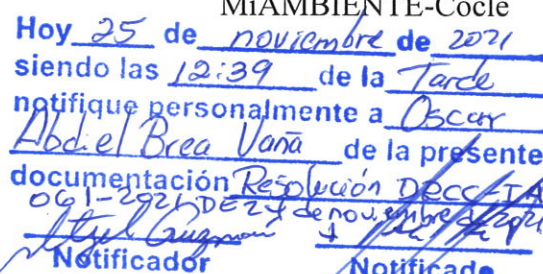 MiAMBIENTE-Cocle
Hoy 25 de noviembre de 2021
siendo las 12:39 de la Tarde
notifique personalmente a Oscar
Abdiel Brea Vaña de la presente
documentación Resolución DRCC-IA
061-2021 DE 24 de noviembre de 2021
Notificador Notificado